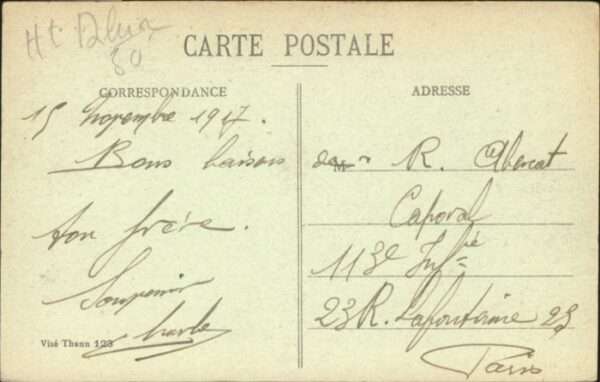 Ht Rhin
80
CARTE POSTALE
CORRESPONDANCE
ADRESSE
15 Novembre 1917.
Bons baisers
ton frère.
Souvenir
Charles
Visé Thann 123
M R.
Caporal
113e Infie
23 R. Lafontaine 23
Paris